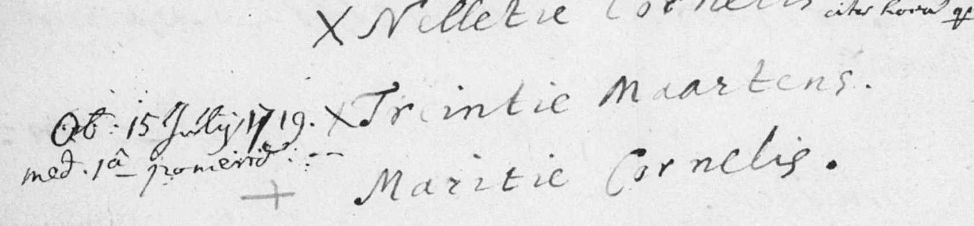 X Nelletie Cornelis citer hora
Ob: 15 Julij 1719. X Treintie Maartens.
med. 1â pomerid: --
+ Maritie Cornelis.